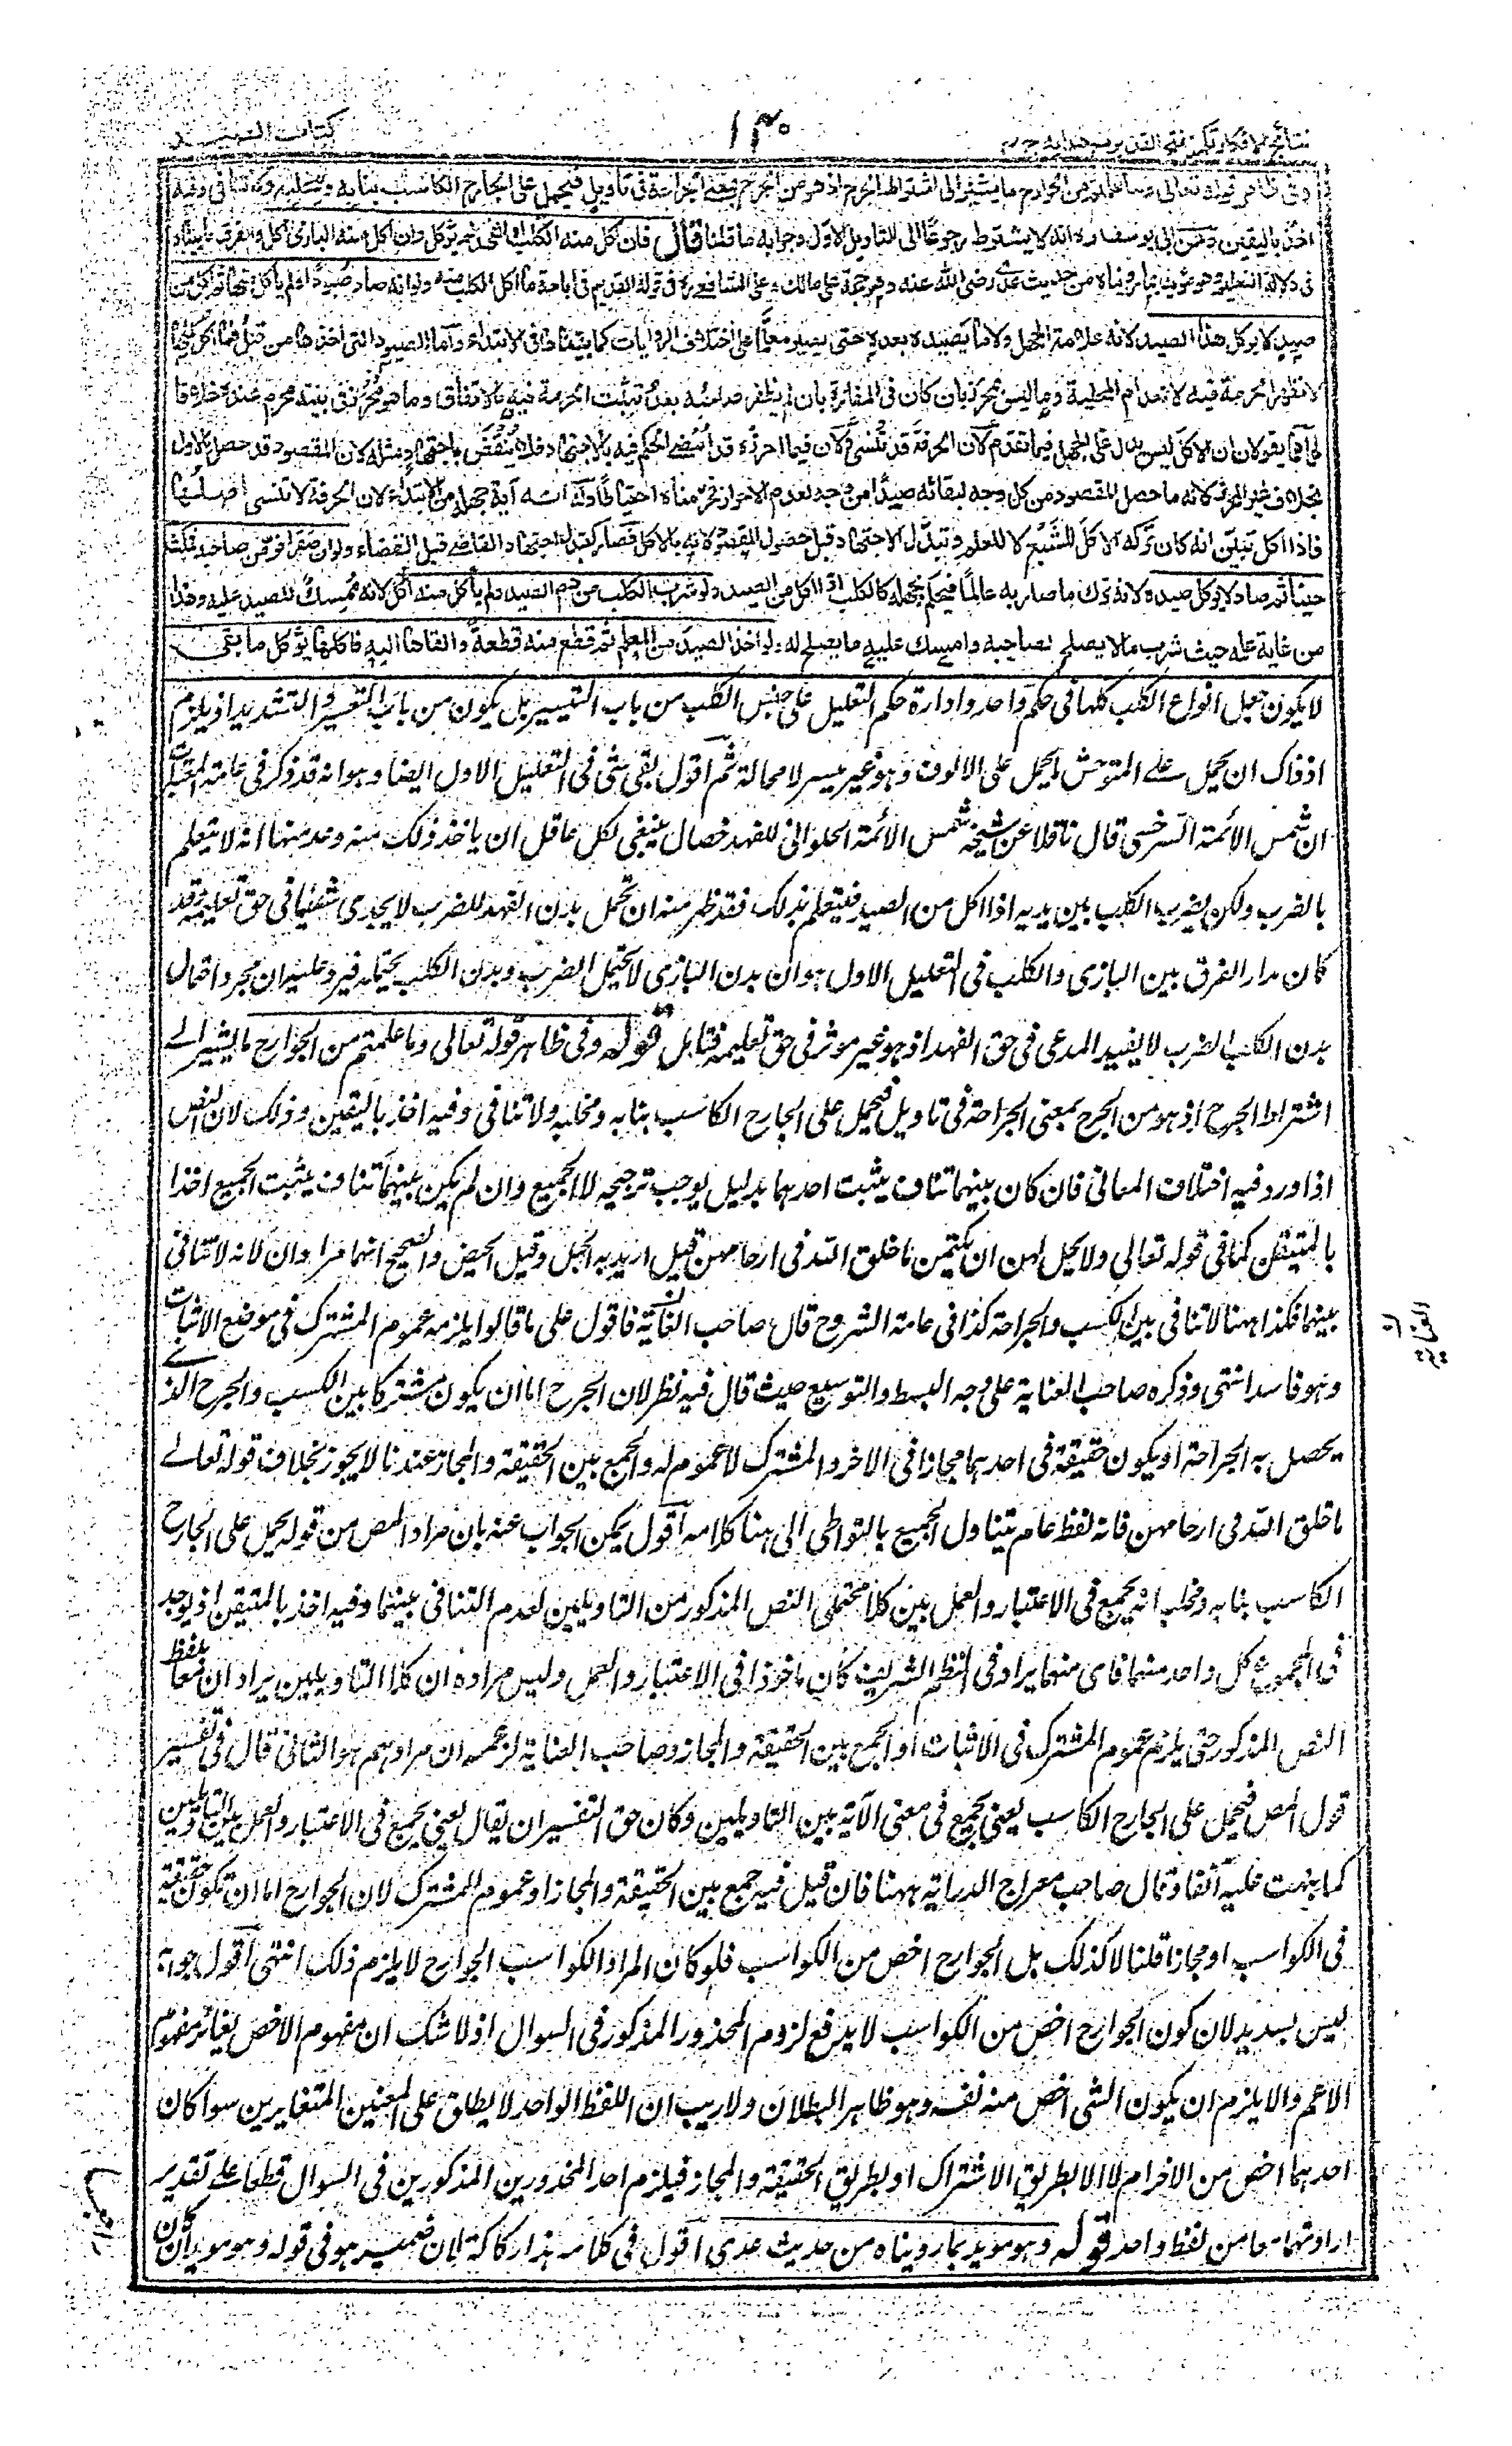 نتائج الافكار تكملة فتح القدير مع هداية ج ٤
١٣٠
كتاب الصيد
وفي ظاهر قوله تعالى وما علمتم من الجوارح ما يشير الى اشتراط الجرح اذ هو من الجرح بمعنى الجراحة في تاويل فيحمل على الجارح الكاسب بنابه ومخلبه ولا تنافي وفيه
اخذ باليقين وعن ابي يوسف رحمه الله انه لا يشترط رجوعا الى التاويل الاول وجوابه ما قلنا قال فان اكل منه الكلب او الفهد لم يوكل وان اكل منه البازي اكل والفرق ما بيناه
في دلالة التعليم وهو مؤيد بما رويناه من حديث عدي رضي الله عنه وهو حجة على مالك وعلى الشافعي في قوله القديم في اباحة ما اكل الكلب منه ولو انه صاد صيودا ولم ياكل منها ثم اكل من
صيد لا يوكل هذا الصيد لانه علامة الجهل ولا ما يصيده بعده حتى يصير معلما على اختلاف الروايات كما بيناها في الابتداء واما الصيود التي اخذها من قبل فما اكل منها
لا تظهر الحرمة فيه لانعدام المحلية وما ليس بمحرز بان كان في المفازة بان لم يظفر صاحبه بعد تثبت الحرمة فيه بالاتفاق وما هو محرز في بيته يحرم عنده خلافا
لهما هما يقولان ان الاكل ليس يدل على الجهل فيما تقدم لان الحرفة قد تنسى ولان فيما احرزه قد امضي الحكم فيه بالاجتهاد فلا ينقض باجتهاد مثله لان المقصود قد حصل بالاول
بخلاف غير المحرز لانه ما حصل المقصود من كل وجه لبقائه صيدا من وجه لعدم الاحراز فحرمناه احتياطا وله انه آية جهله من الابتداء لان الحرفة لا تنسى اصلها
فاذا اكل تبين انه كان تركه الاكل للشبع لا للعلم وتبدل الاجتهاد قبل حصول المقصود لانه بالاكل فصار كتبدل اجتهاد القاضي قبل القضاء ولو ان صقرا فر من صاحبه فمكث
حينا ثم صاد لا يوكل صيده لانه ترك ما صار به عالما فيحكم بجهله كالكلب اذا اكل من الصيد ولو شرب الكلب من دم الصيد ولم ياكل منه اكل لانه ممسك للصيد عليه وهذا
من غاية علمه حيث شرب ما لا يصلح لصاحبه وامسك عليه ما يصلح له ولو اخذ الصيد من المعلم ثم قطع منه قطعة والقاها اليه فاكلها يؤكل ما بقي
لا يكون جعل انواع الكلب كلها في حكم واحد وادارة حكم التعليل على جنس الكلب من باب التيسير بل يكون من باب التعسير والتشديد اذ يلزم
اذ ذاك ان يحمل على المتوحش ما يحمل على الالوف وهو غير ميسر لا محالة ثم اقول بقي شئ في التعليل الاول ايضا وهو انه قد ذكر في عامة المعتبرات
ان شمس الائمة السرخسي قال ناقلا عن شيخه شمس الائمة الحلواني للفهد خصال ينبغي لكل عاقل ان ياخذ ذلك منه وعد منها انه لا يتعلم
بالضرب ولكن يضرب الكلب بين يديه اذا اكل من الصيد فيتعلم بذلك فقد ظهر منه ان تحمل بدن الفهد للضرب لا يجدي شيئا في حق تعليمه وقد
كان مدار الفرق بين البازي والكلب في التعليل الاول هو ان بدن البازي لا يحتمل الضرب وبدن الكلب يحتمله فيرد عليه ان مجرد احتمال
بدن الكلب الضرب لا يفيد المدعى في حق الفهد اذ هو غير موثر في حق تعليمه فتامل قوله وفي ظاهر قوله تعالى وما علمتم من الجوارح ما يشير الى
اشتراط الجرح اذ هو من الجرح بمعنى الجراحة في تاويل فيحمل على الجارح الكاسب بنابه ومخلبه ولا تنافي وفيه اخذ باليقين وذلك لان النص
اذا ورد فيه اختلاف المعاني فان كان بينهما تناف يثبت احدهما بدليل يوجب ترجيحه لا الجميع وان لم يكن بينهما تناف يثبت الجميع اخذا
بالمتيقن كما في قوله تعالى ولا يحل لهن ان يكتمن ما خلق الله في ارحامهن قيل اريد به الحبل وقيل الحيض والصحيح انهما مرادان لانه لا تنافي
بينهما فكذا ههنا لا تنافي بين الكسب والجراحة كذا في عامة الشروح قال صاحب الغاية فاقول على ما قالوا يلزم عموم المشترك في موضع الاثبات
وهو فاسد انتهى وذكره صاحب العناية على وجه البسط والتوسيع حيث قال فيه نظر لان الجرح اما ان يكون مشتركا بين الكسب والجرح الذي
يحصل به الجراحة او يكون حقيقة في احدهما مجازا في الاخر والمشترك لا عموم له والجمع بين الحقيقة والمجاز عندنا لا يجوز بخلاف قوله تعالى
ما خلق الله في ارحامهن فانه لفظ عام يتناول الجميع بالتواطى الى هنا كلامه اقول يمكن الجواب عنه بان مراد المص من قوله يحمل على الجارح
الكاسب بنابه ومخلبه انه يجمع في الاعتبار والعمل بين كلا محتملي النص المذكور من التاويلين لعدم التنافي بينهما وفيه اخذ بالمتيقن اذ يوجد
في المجموع كل واحد منهما فاى منهما يراد في النظم الشريف كان ماخوذا في الاعتبار والعمل وليس مراده ان كلا التاويلين يرادان معا بلفظ
النص المذكور حتى يلزم عموم المشترك في الاثبات او الجمع بين الحقيقة والمجاز وصاحب العناية لزعمه ان مرادهم هو الثاني قال في تفسير
قول المص فيحمل على الجارح الكاسب يعني يجمع في معنى الآية بين التاويلين وكان حق التفسير ان يقال يعني يجمع في الاعتبار والعمل بين التاويلين
كما نبهت عليه آنفا وقال صاحب معراج الدراية ههنا فان قيل فيه جمع بين الحقيقة والمجاز او عموم المشترك لان الجوارح اما ان تكون حقيقة
في الكواسب او مجازا قلنا لا كذلك بل الجوارح اخص من الكواسب فلو كان المراد الكواسب الجوارح لا يلزم ذلك انتهى اقول جوابه
ليس بسديد لان كون الجوارح اخص من الكواسب لا يدفع لزوم المحذور المذكور في السوال اذ لا شك ان مفهوم الاخص يغائر مفهوم
الاعم والا يلزم ان يكون الشئ اخص منه نفسه وهو ظاهر البطلان ولا ريب ان اللفظ الواحد لا يطلق على المعنيين المتغايرين سوا كان
احدهما اخص من الاخر ام لا الا بطريق الاشتراك او بطريق الحقيقة والمجاز فيلزم احد المحذورين المذكورين في السوال قطعا على تقدير
ارادتهما معا من لفظ واحد قوله وهو مويد بما رويناه من حديث عدي اقول في كلامه هذا ركاكة لان ضمير هو في قوله وهو مويد ان كان